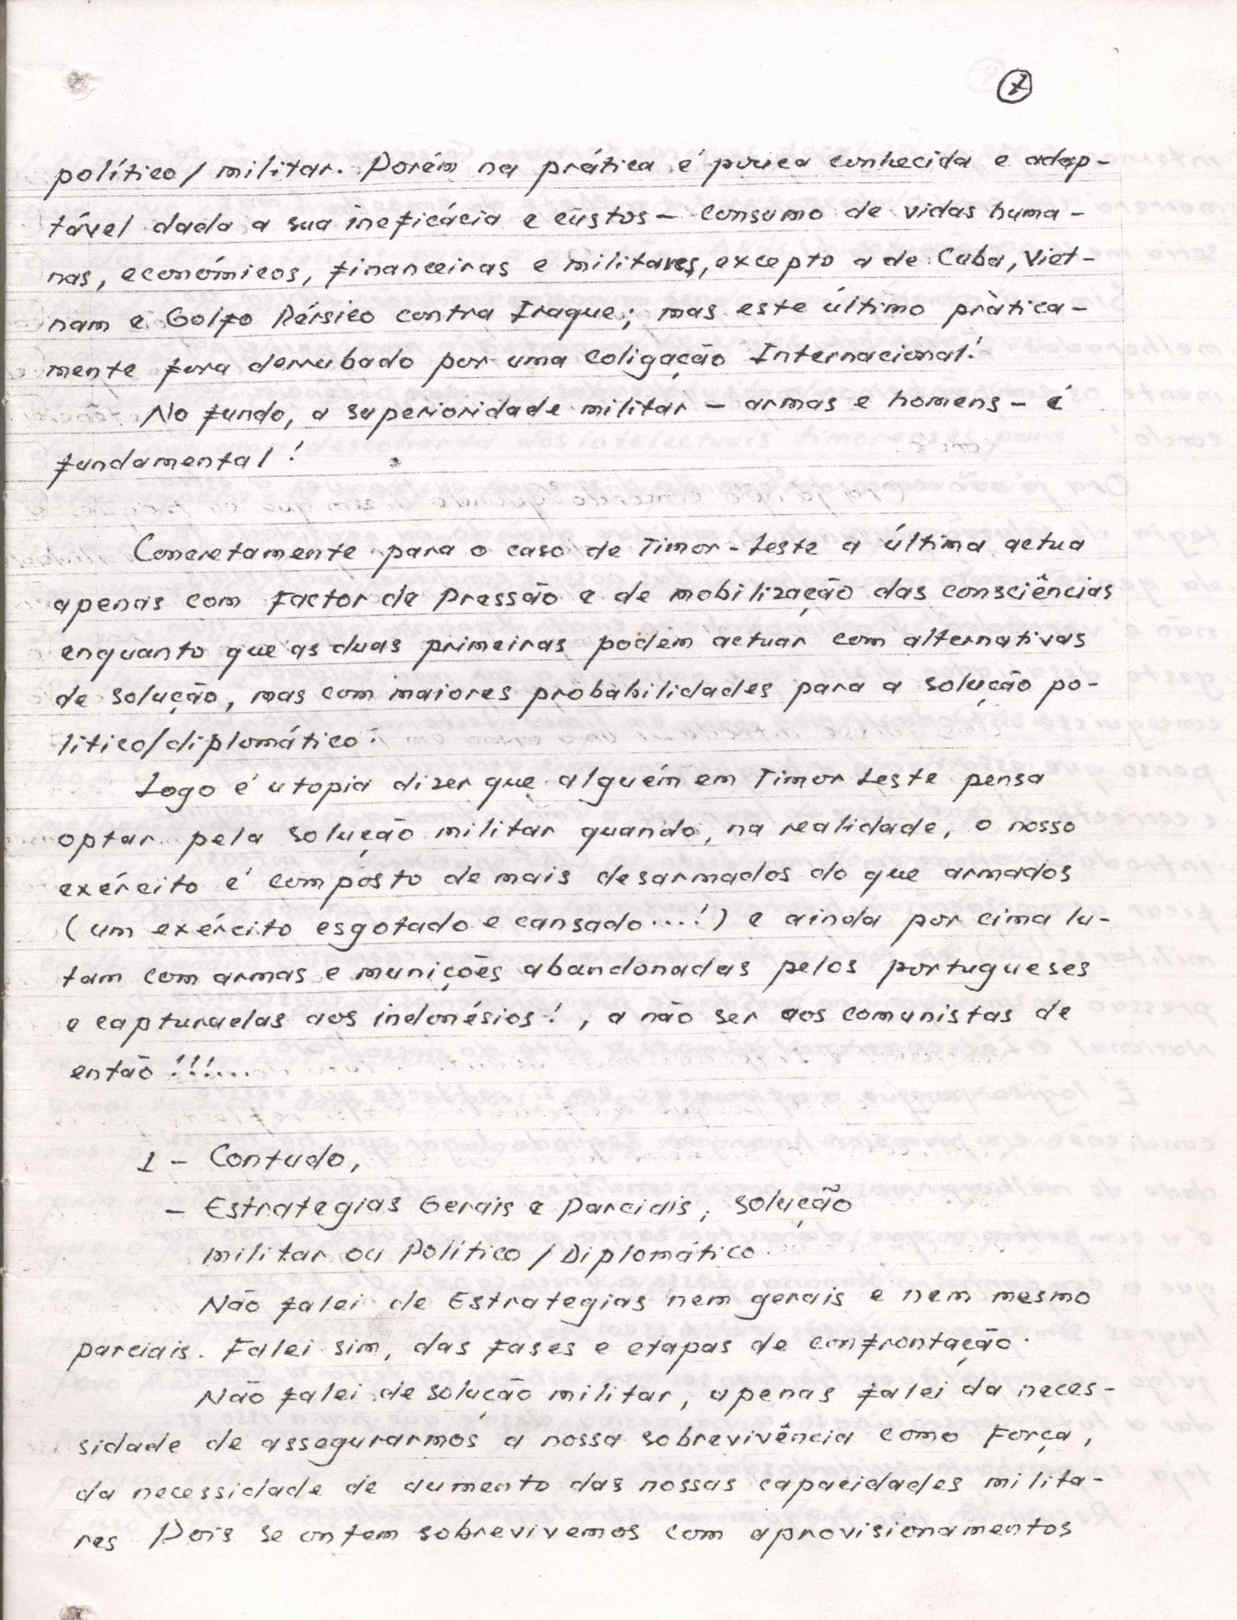 7
político/militar. Porém na prática é pouca conhecida e adap-
tável dada a sua ineficácia e custos - consumo de vidas huma-
nas, económicos, financeiras e militares, excepto a de Cuba, Viet-
nam e Golfo Pérsico contra Iraque; mas este último pràtica-
mente fora derrubado por uma coligação Internacional!
No fundo, a superioridade militar - armas e homens - é
fundamental!
Concretamente para o caso de Timor-Leste a última actua
apenas com factor de Pressão e de mobilização das consciências
enquanto que as duas primeiras podem actuar com alternativas
de solução, mas com maiores probabilidades para a solução po-
lítico/diplomático.
Logo é utopia dizer que alguém em Timor Leste pensa
optar pela solução militar quando, na realidade, o nosso
exército é composto de mais desarmados do que armados
(um exército esgotado e cansado...!) e ainda por cima lu-
tam com armas e munições abandonadas pelos portugueses
e capturadas aos indonésios!, a não ser aos comunistas de
então!!!....
1 - Contudo,
- Estrategias Gerais e Parciais, solução
militar ou Político/Diplomático.
Não falei de Estrategias nem gerais e nem mesmo
parciais. Falei sim, das fases e etapas de confrontação.
Não falei de solução militar, apenas falei da neces-
sidade de assegurarmos a nossa sobrevivência como Força,
da necessidade de aumento das nossas capacidades milita-
res Pois se ontem sobrevivemos com aprovisionamentos